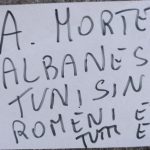 A. MORTE
ALBANES
TUNISIN
ROMENI E
TUTTI E